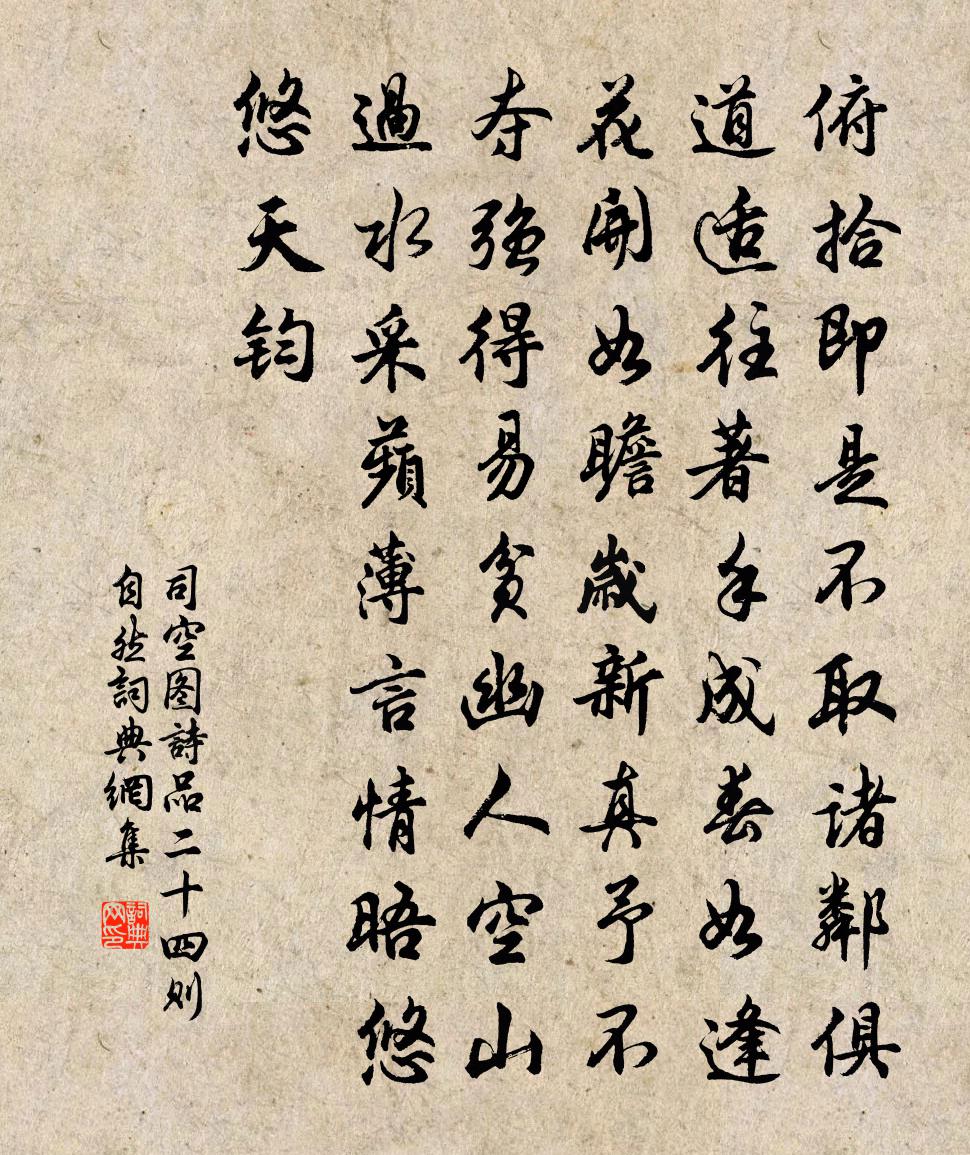 俯拾即是不取諸鄰俱
道适往著手成春如逢
花開如瞻歲新真予不
夺強得易貧幽人空山
過水采蘋薄言情晤悠
悠天钧
司空图詩品二十四则
自然詞典網集
詞典网印